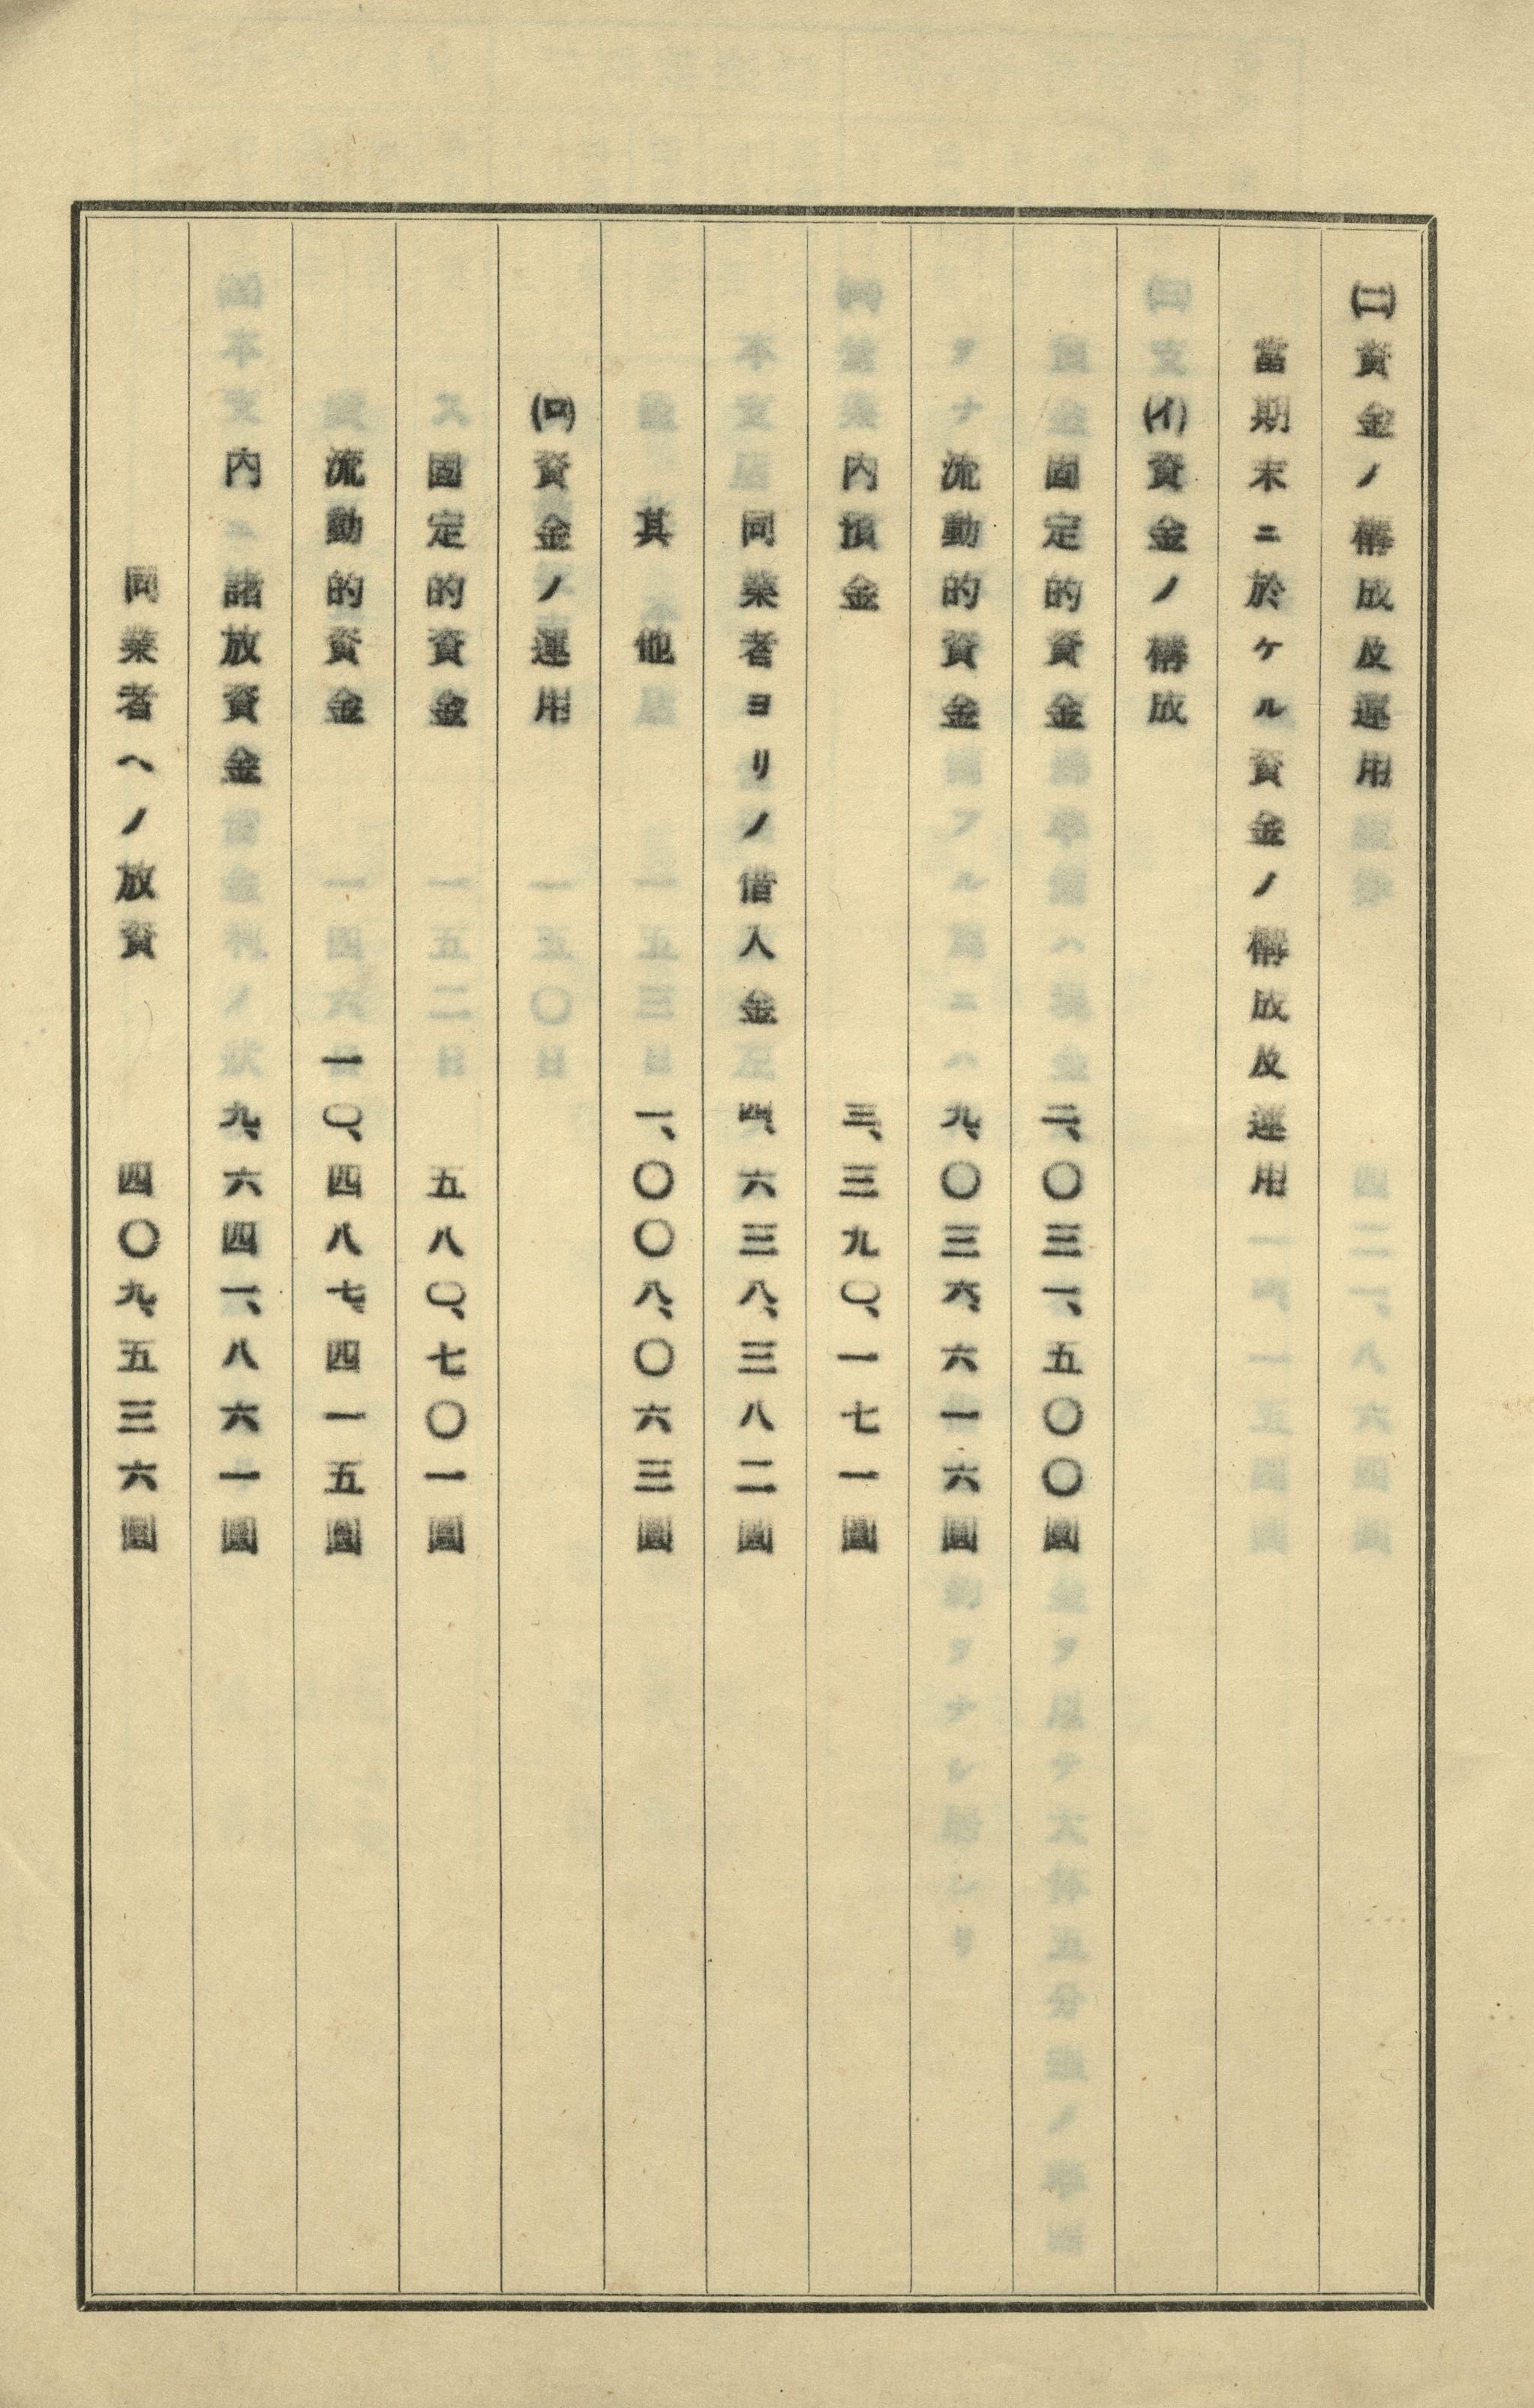 ㈡資金ノ構成及運用
當期末ニ於ケル資金ノ構成及運用
(イ)資金ノ構成
固定的資金 二、〇三一、五〇〇圓
流動的資金 九、〇三六、六一六圓
内預金 三、三九〇、一七一圓
同業者ヨリノ借入金 四、六三八、三八二圓
其他 一、〇〇八、〇六三圓
(ロ)資金ノ運用
固定的資金 五八〇、七〇一圓
流動的資金 一〇、四八七、四一五圓
内諸放資金 九、六四一、八六一圓
同業者ヘノ放資 四〇九、五三六圓